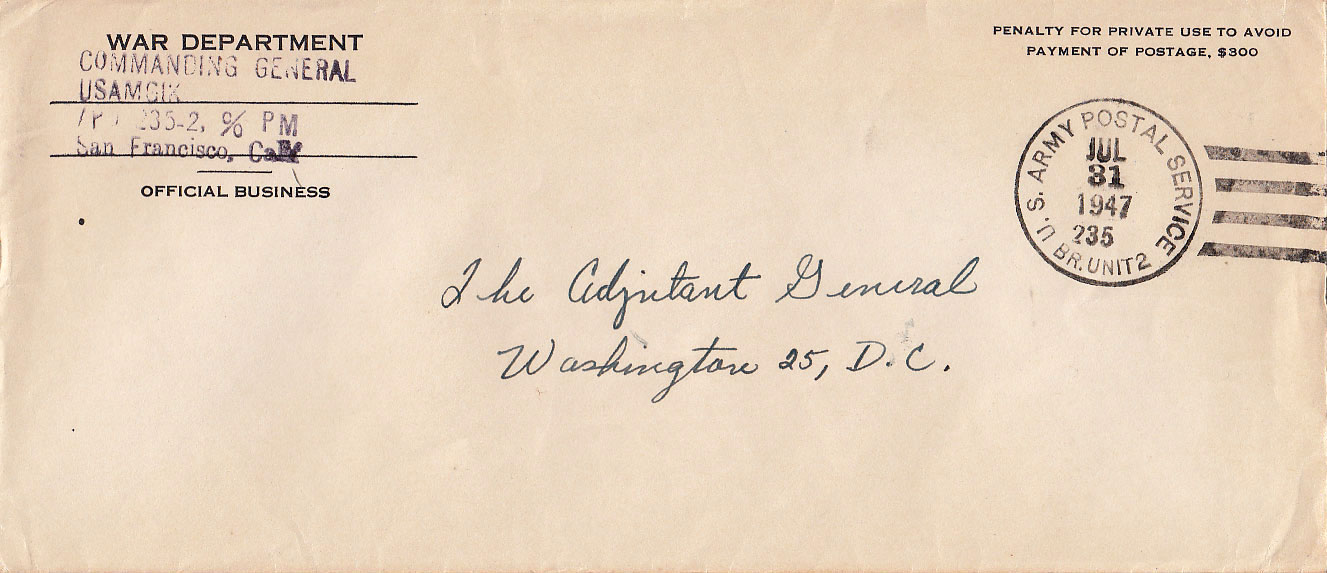 WAR DEPARTMENT
COMMANDING GENERAL
USAMGIK
235-2, % PM
San Francisco, Calif
OFFICIAL BUSINESS
PENALTY FOR PRIVATE USE TO AVOID
PAYMENT OF POSTAGE, $300
U. S. ARMY POSTAL SERVICE
JUL
31
1947
235
BR. UNIT 2
The Adjutant General
Washington 25, D.C.